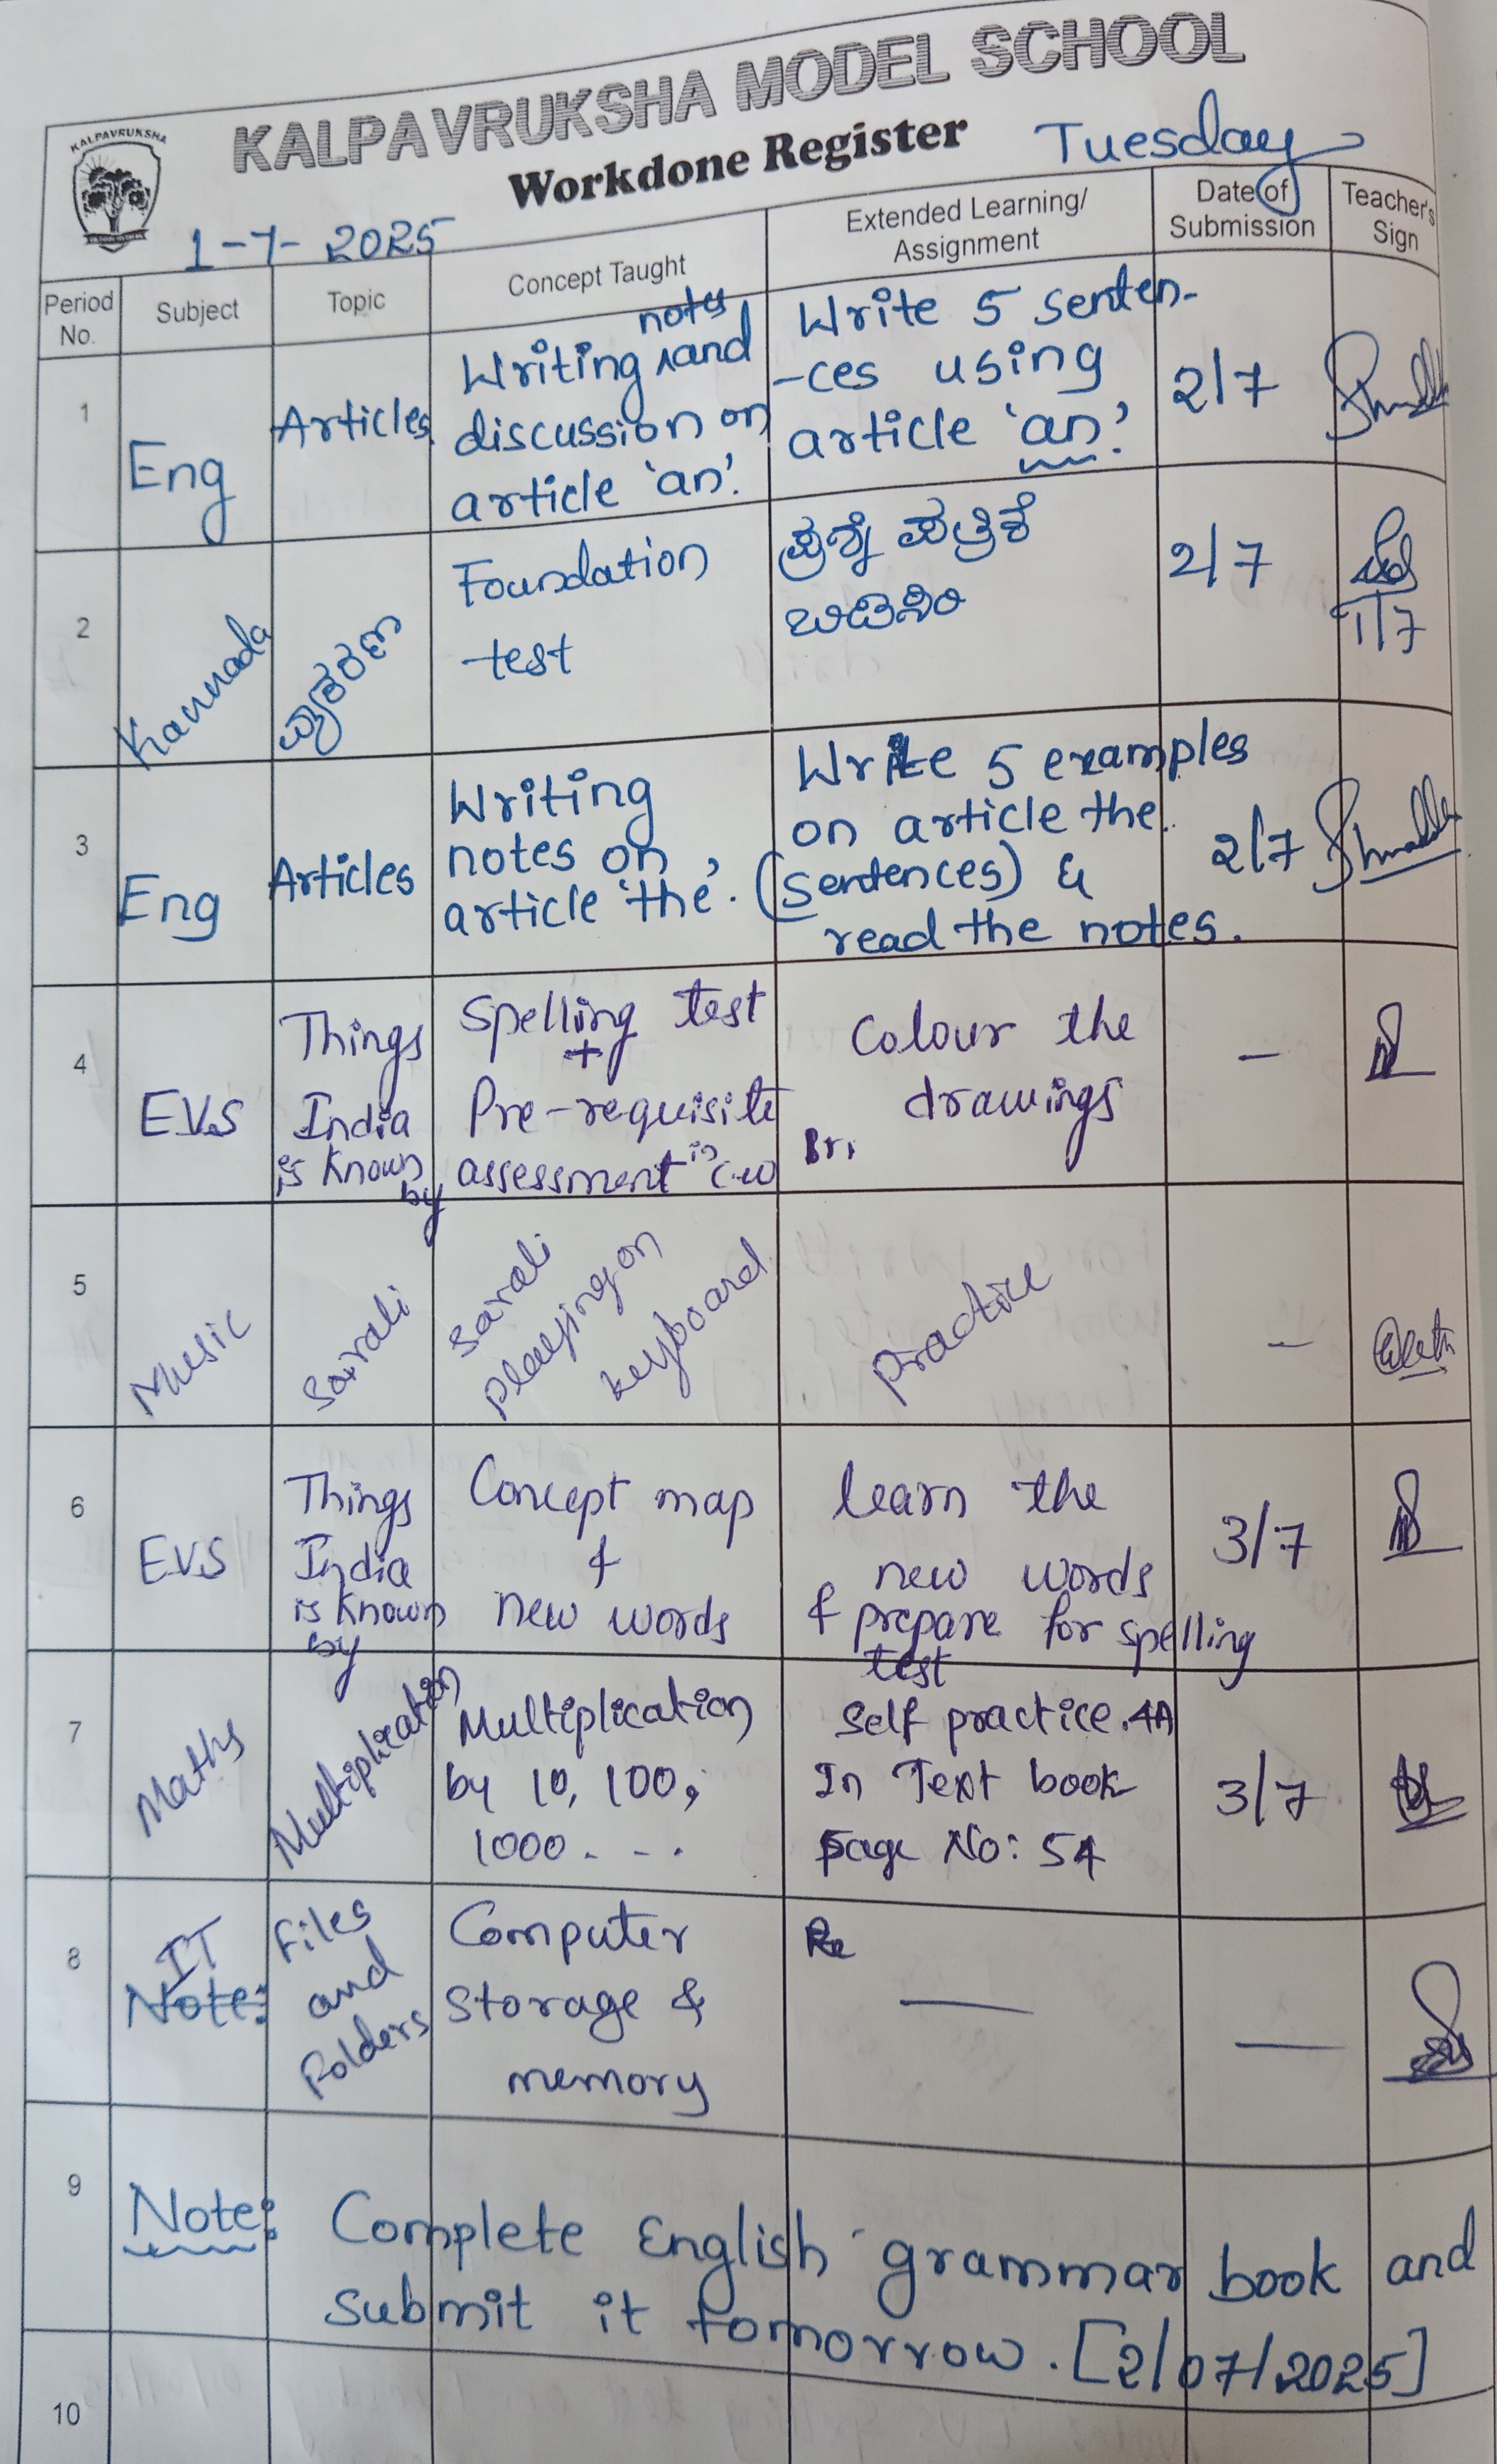 KALPAVRUKSHA MODEL SCHOOL
KALPAVRUKSHA
Workdone Register
Tuesday
1-7-2025
Period No.
Subject
Topic
Concept Taught
Extended Learning/
Assignment
Date of
Submission
Teacher's
Sign
1
Eng
Articles
Writing notes and
discussion on
article 'an'.
Write 5 senten-
-ces using
article 'an'.
2/7
2
Kannada
ವ್ಯಾಕರಣ
Foundation
test
ಪ್ರಶ್ನೆ ಪತ್ರಿಕೆ
2/7
1/7
3
Eng
Articles
Writing
notes on
article 'the'.
Write 5 examples
on article the.
(sentences) &
read the notes.
2/7
4
EVS
Things
India
is known
by
Spelling test
+
Pre-requisite
assessment in C.W
Colour the
drawings
–
5
Music
Sarali
Sarali
playing on
keyboard
Practice
–
6
EVS
Things
India
is known
by
Concept map
&
new words
learn the
new words
& prepare for spelling
test
3/7
7
Maths
Multiplication
Multiplication
by 10, 100,
1000. . .
Self practice.4A
In Text book
page No: 54
3/7
8
IT
Note:
Files
and
Folders
Computer
Storage &
memory
Re
—
—
9
Note: Complete English grammar book and
submit it tomorrow. [2/07/2025]
10